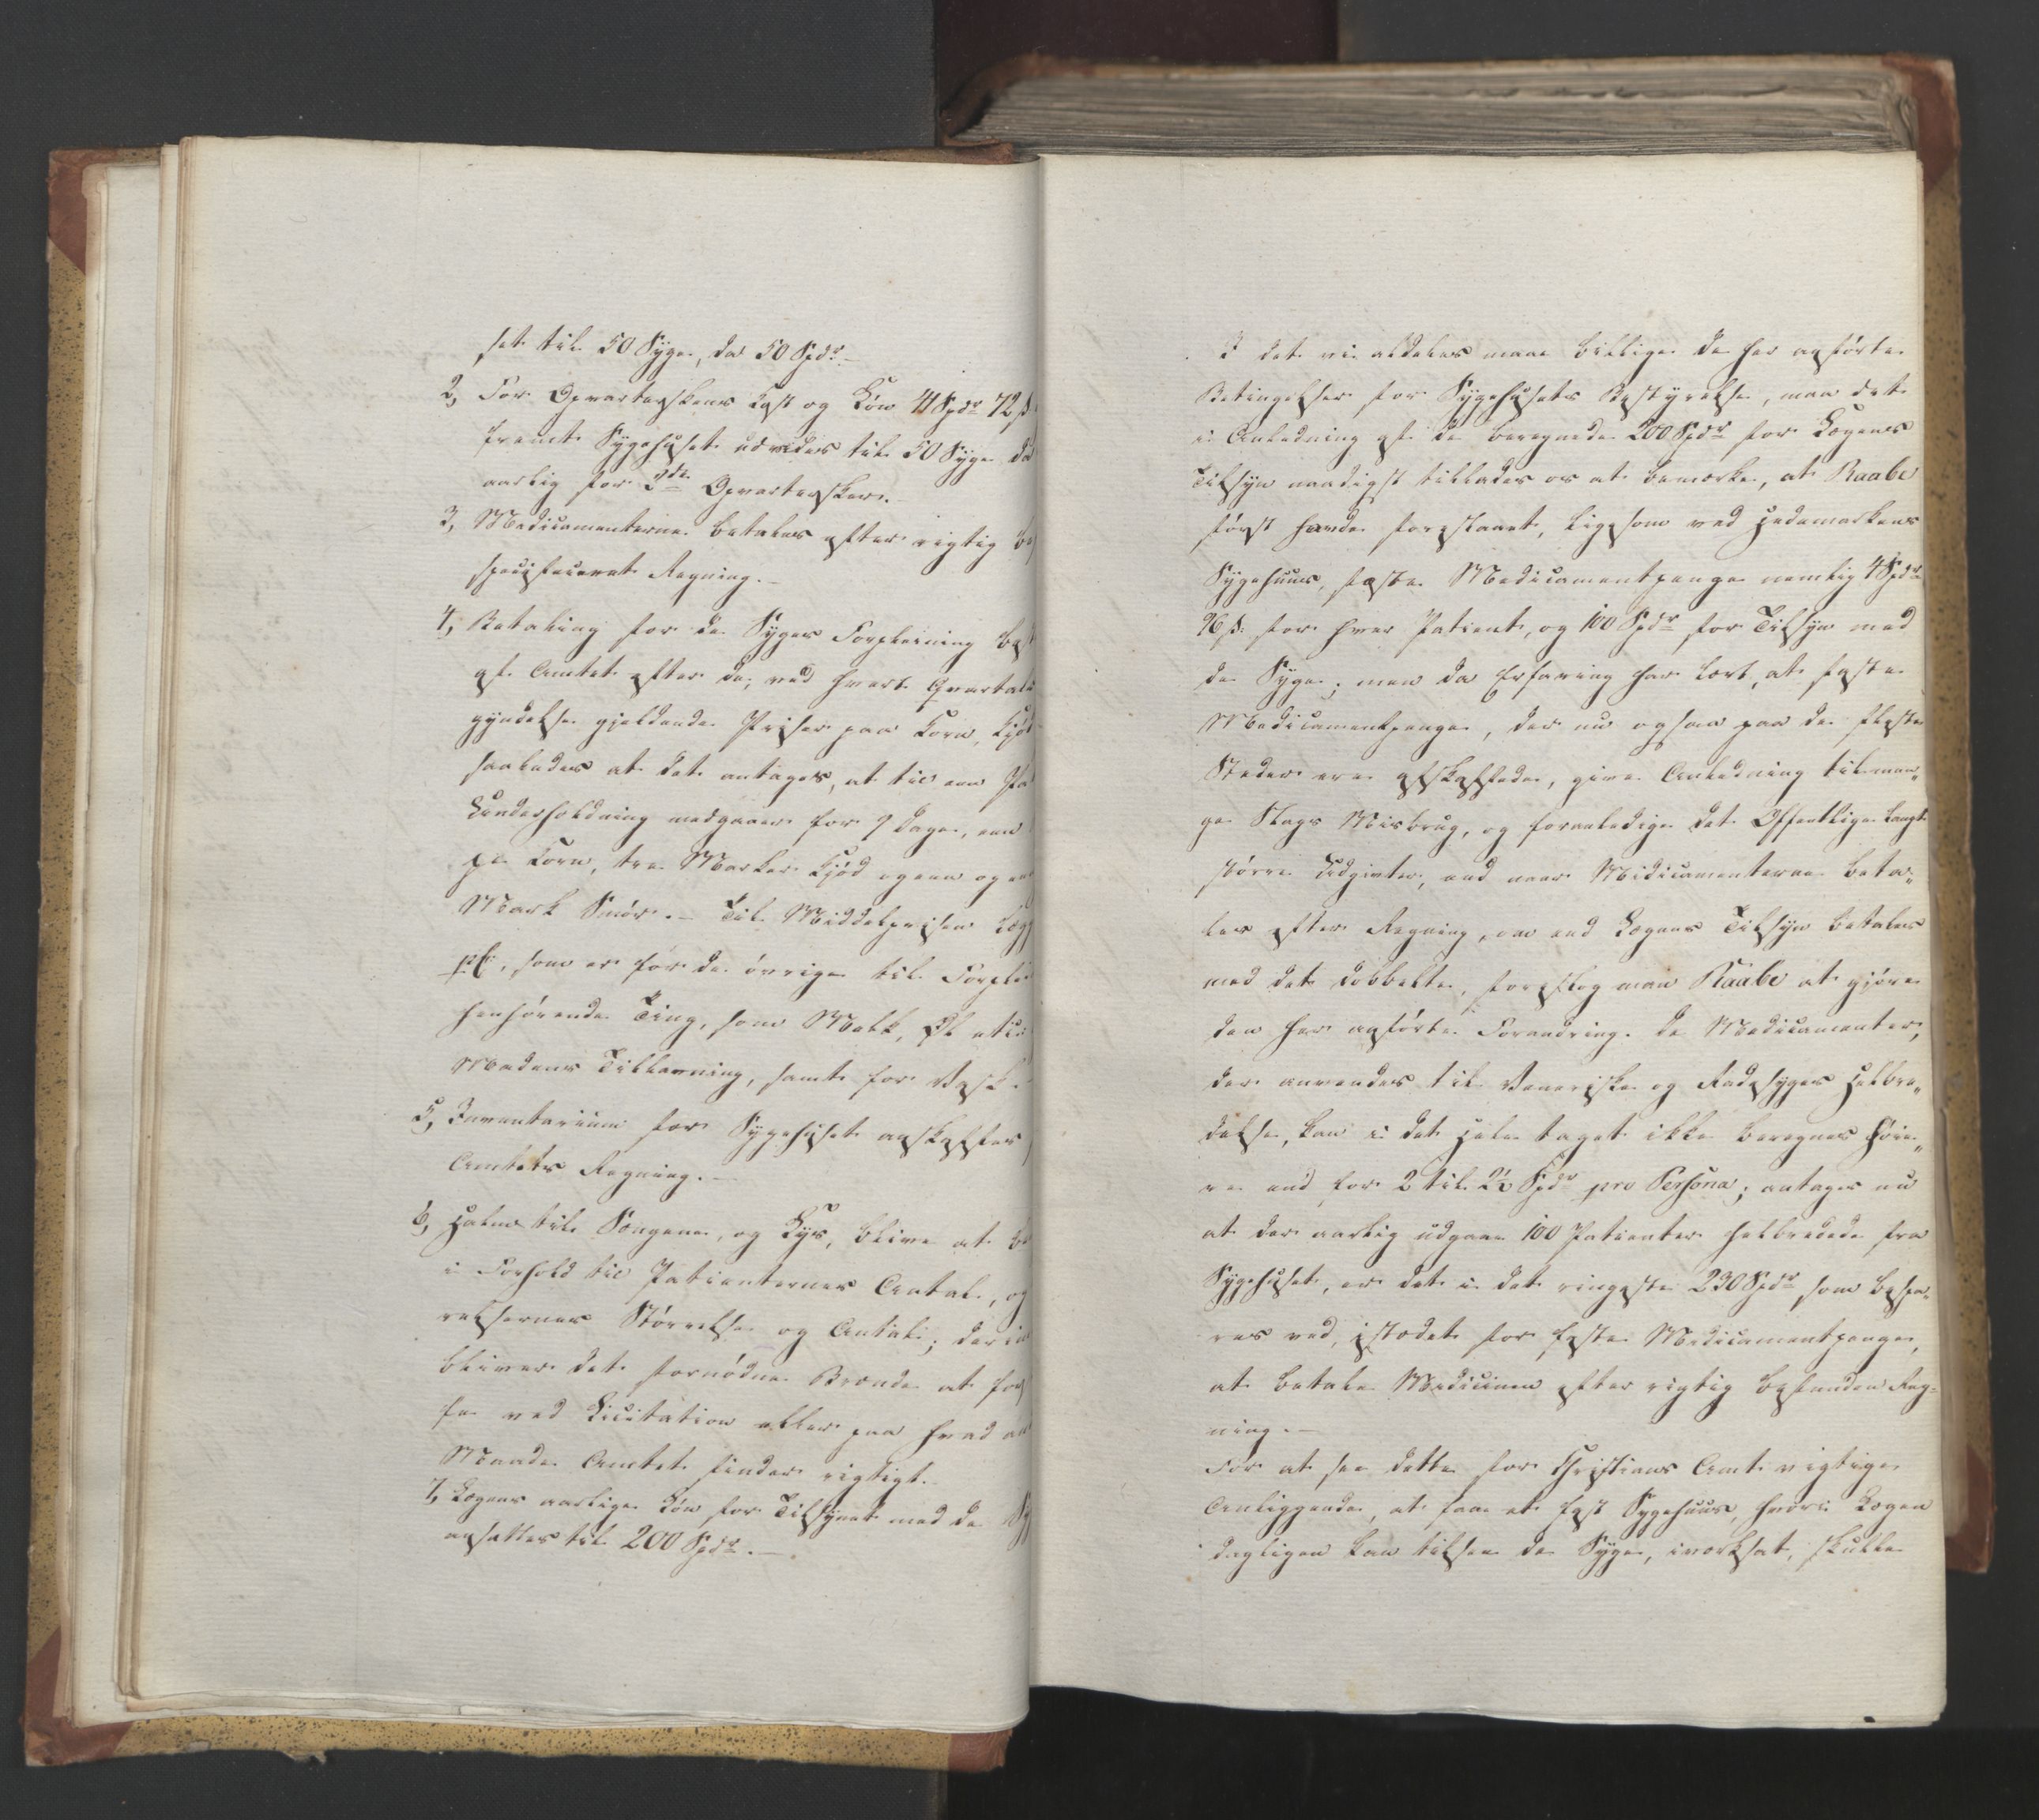 set til 50 Syge, da 50 Spdr.
2, For Opvarterskens Kost og Løn 41 Spdr 72 ß
fremt Sygehuset udvides til 50 Syge da
aarlig for 2de Opvartersker.
3, Medicamenterne betales efter rigtig be
specificeret Regning.
4, Betaling for de Syges Forpleining best
af Amtet efter de, ved hvert Qvartals
gyndelse gjeldende Priser paa Korn, Kjød
saaledes at det antages, at til een Pa
Underholdning medgaaer for 7 Dage, een
pe Korn, tre Marker Kjød og een og en
Mark Smør. – Til Middelprisen lægg
pC, som er for de øvrige til Forplei
henhørende Ting, som Melk, Øl etc:
Madens Tillavning, samt for Vask.
5, Inventarium for Sygehuset anskaffes
Amtets Regning.
6, Halm til Sengene, og Lys, blive at be
i Forhold til Patienternes Antal, og
relsernes Størrelse og Antal; der
bliver det fornødne Brænde at for
fe ved Licitation eller paa hvad an
Maade Amtet finder rigtigt.
7, Lægens aarlige Løn for Tilsynet med de Sy
ansættes til 200 Spdr. –
I det vi aldeles maae billige de her anførte
Betingelser for Sygehusets Bestyrelse, maa det
i Anledning af de beregnede 200 Spdr for Lægens
Tilsyn naadigst tillades os at bemærke, at Raabe
først havde foreslaaet, ligesom ved Hedemarkens
Sygehuus, faste Medicamentpenge nemlig 4 Spdr
96 ß. for hver Patient, og 100 Spdr for Tilsyn med
de Syge; men da Erfaring har lært, at faste
Medicamentpenge, der nu ogsaa paa de fleste
Steder ere afskaffede, give Anledning til man„
ge Slags Misbrug, og foranledige det Offentlige langt
større Udgivter, end naar Medicamenterne beta„
les efter Regning, om end Lægens Tilsyn betales
med det dobbelte, foreslog man Raabe at gjøre
den her anførte Forandring. De Medicamenter,
der anvendes til Veneriske og Radesyges Helbre„
delse, kan i det Hele taget ikke beregnes høie„
re end for 2 til 2½ Spdr pro Persona; antages nu
at der aarlig udgaae 100 Patienter helbredede fra
Sygehuset, er det i det ringeste 230 Spdr som bespa„
res ved, istædet for faste Medicamentpenge,
at betale Medicinen efter rigtig befunden Reg=
ning. –
For at see dette for Christians Amt vigtige
Anliggende, at faae et fast Sygehuus, hvori Lægen
dagligen kan tilsee de Syge, iværksat, skulle